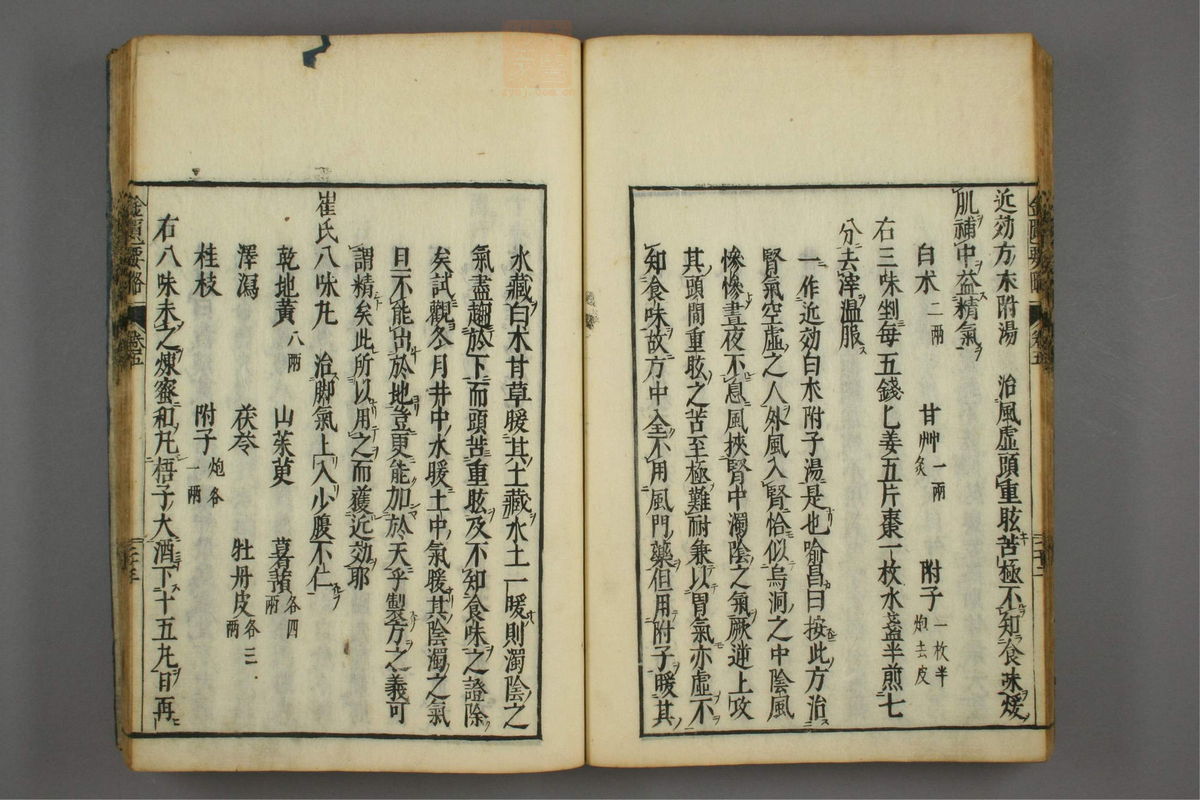 近効方朮附湯　治風虛頭重眩苦極不知食味煖
肌補中益精氣
白朮二兩　甘艸炙一兩　附子一枚半炮去皮
右三味剉每五錢匕姜五片棗一枚水盞半煎七
分去滓溫服
一作近効白朮附子湯是也喻昌曰按此方治
腎氣空虛之人外風入腎恰似烏洞之中陰風
慘慘晝夜不息風挾腎中濁陰之氣厥逆上攻
其頭間重眩之苦至極難耐兼以胃氣亦虛不
知食味故方中全不用風門藥但用附子暖其
水藏白朮甘草暖其土藏水土一暖則濁陰之
氣盡趨於下而頭苦重眩及不知食味之證除
矣試觀冬月井中水暖土中氣暖其陰濁之氣
且不能出於地豈更能加於天乎製方之義可
謂精矣此所以用之而獲近効耶
崔氏八味丸　治脚氣上入少腹不仁
乾地黃八兩　山茱萸　薯蕷各四兩
澤瀉　茯苓　牡丹皮各三兩
桂枝　附子炮各一兩
右八味末之煉蜜和丸梧子大酒下十五丸日再
金匱要略　卷五